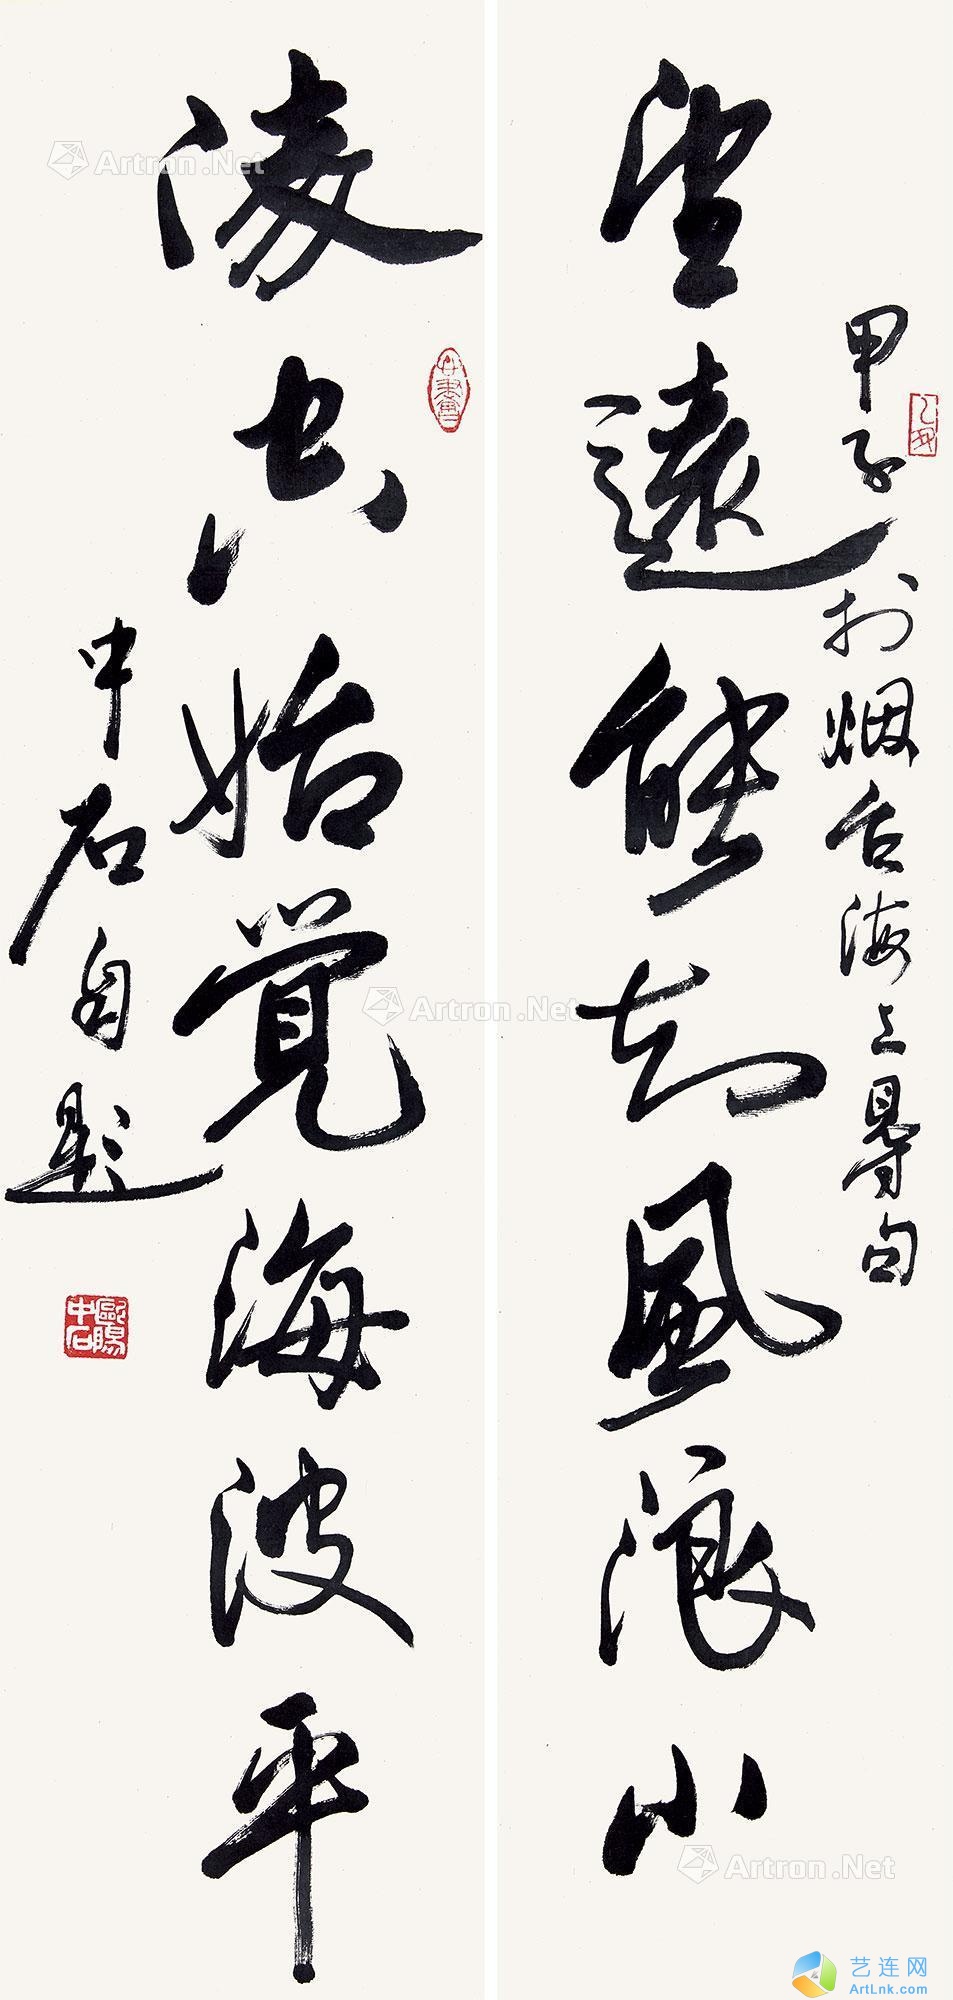 望遠能知風浪小
甲子於烟台海上得句
凌空始覚海波平
中石自題
歐陽中石
Artron.Net
Artron.Net
Artron.Net
艺连网
ArtLnk.com